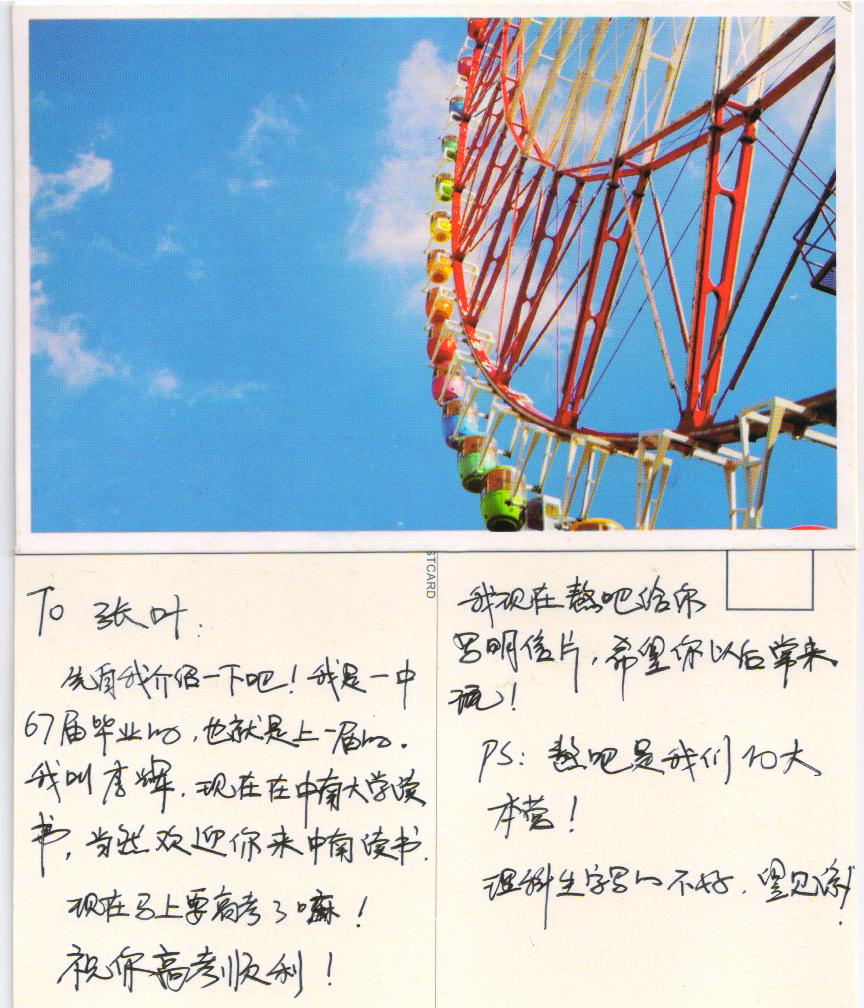 To 张叶:
先自我介绍一下吧！我是一中
67届毕业的，也就是上一届的.
我叫李辉，现在在中南大学读
书，当然欢迎你来中南读书.
现在马上要高考了嘛！
祝你高考顺利！
STCARD
我现在熬吧给你
写明信片，希望你以后常来
玩！
PS：熬吧是我们的大
本营！
理科生字写的不好，望见谅！